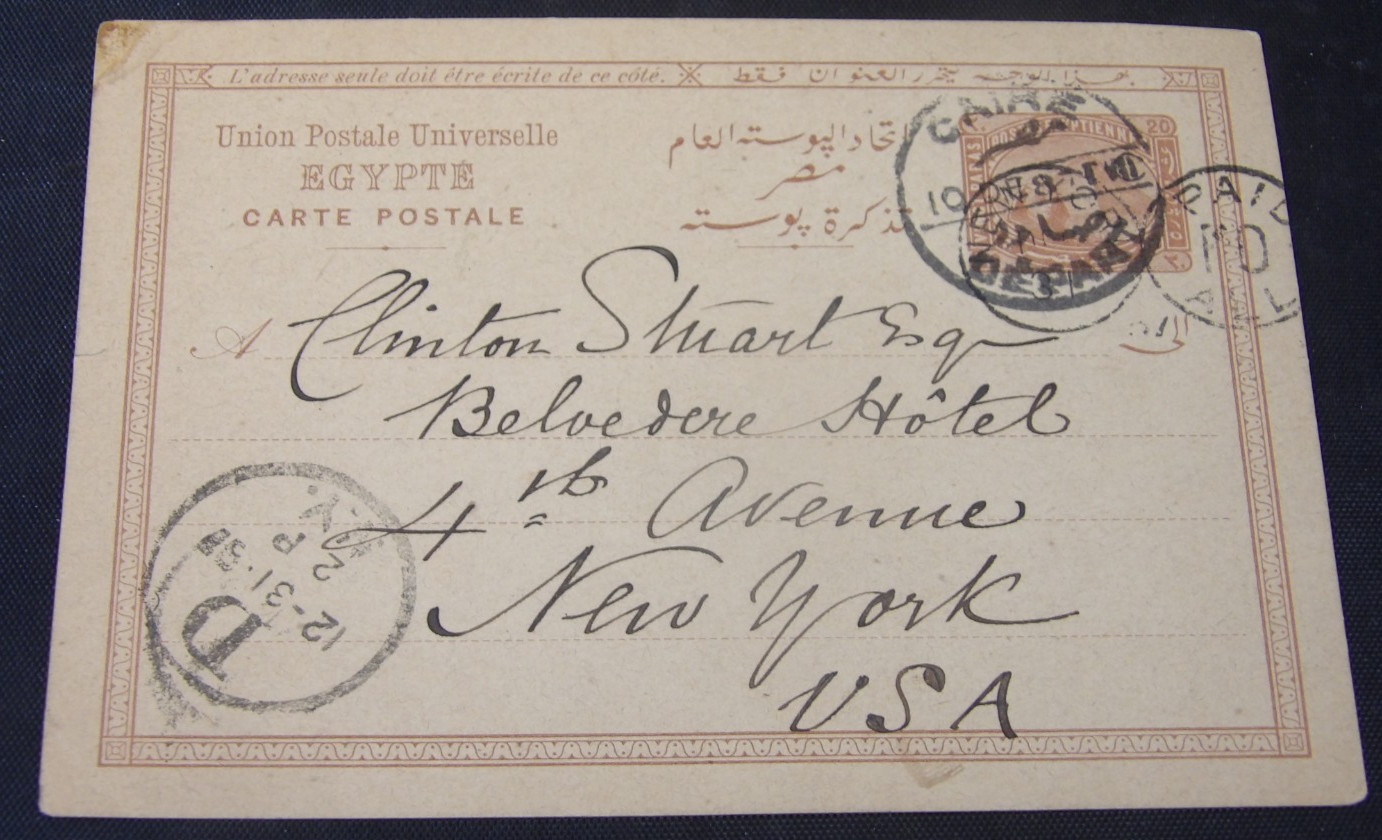 L'adresse seule doit être écrite de ce côté. بهذا الوجه يتحرر العنوان فقط
Union Postale Universelle
EGYPTE
CARTE POSTALE
اتحاد البوسته العام
مصر
تذكرة بوسته
CAIRE
DEPART
20
PAID
ALL
A Clinton Stuart Esq الى
Belvedere Hôtel
4th Avenue
New York
USA
D
12-31